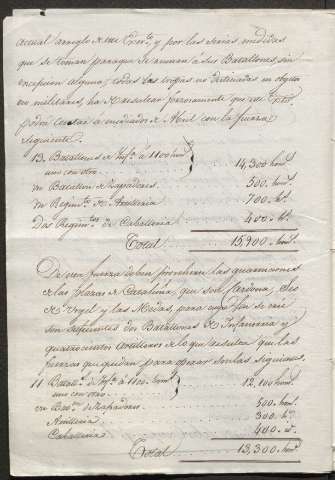 actual arreglo de este Exto. y por las serias medidas
que se toman para que se reunan á sus Batallones, sin
excepcion alguna, todas las tropas no destinadas en objetos
militares, ha de resultar precisamente que este Exto.
podrá contar á mediados de Abril con la fuerza
siguiente.
13 Batallones de Infa. á 1100 homs.
uno con otro. 14,300 homs.
un Batallon de Zapadores. 500. homs.
un Regimto. de Artilleria 700. hs.
Dos Regimtos. de Caballeria 400. hs.
Total 15,900. homs.
De esta fuerza deben proveherse las guarniciones
de las plazas de Cataluña, que son Cardona, Seo
de Urgel y las Medas, para cuyo fin se
son suficientes dos Batallones de Infanteria y
quatrocientos Artilleros de lo que resulta que las
fuerzas que quedan para obrar son las siguientes.
11 Batallos. de Infa. á 1100. homs.
uno con otro 12,100 homs.
un Baton. de Zapadores. 500 homs.
Artilleria 300. hs.
Caballeria 400. id.
Total 13,300. homs.